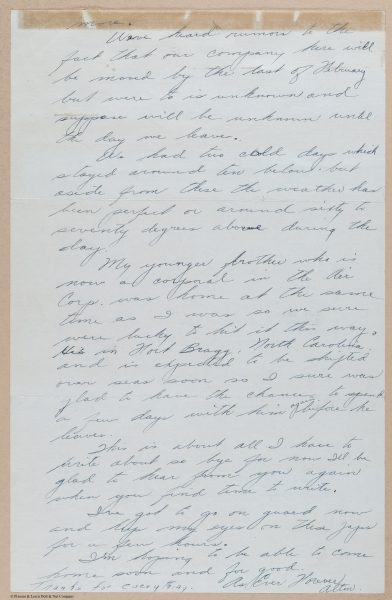 more.
Weve heard rumors to the
fact that our company here will
be moved by the last of February
but were to is unknown and
suppose will be unknown until
th day we leave.
We had two cold days which
stayed around ten below. but
aside from these the weather has
been perfect or around sixty to
seventy degrees above during the
day.
My younger brother who is
now a corporal in the Air
Corp. was home at the same
time as I was so we sure
were lucky to hit it this way.
He's in Fort Bragg, North Carolina
and is expected to be shifted
over seas soon so I sure was
glad to have the chance to spend
a few days with him before he
leaves.
This is about all I have to
write about so bye for now I'll be
glad to hear from you again
when you find time to write.
I've got to go on guard now
and keep my eyes on these Japs
for a few hours.
I'm hoping to be able to come
home soon and for good.
Thanks for every thing. As Ever